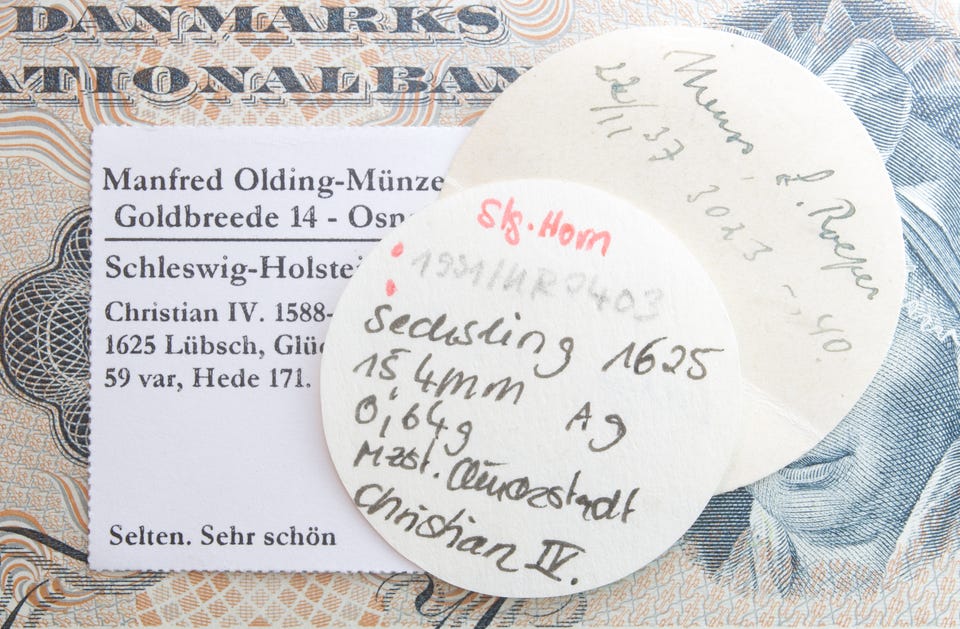 DANMARKS
ATIONALBAN
Manfred Olding-Münze
Goldbreede 14 - Osn
Schleswig-Holstei
Christian IV. 1588-
1625 Lübsch, Glüc
59 var, Hede 171.
Selten. Sehr schön
Slg. Horn
1991/HR 2403
Sechsling 1625
15,4mm
0,64g Ag
Mzst. Glückstadt
Christian IV.
22/11 37
3023
-,40